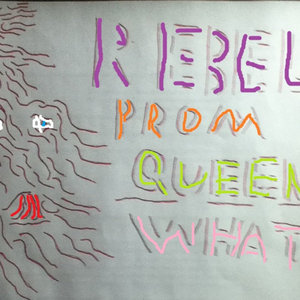 REBEL
PROM
QUEEN
WHAT